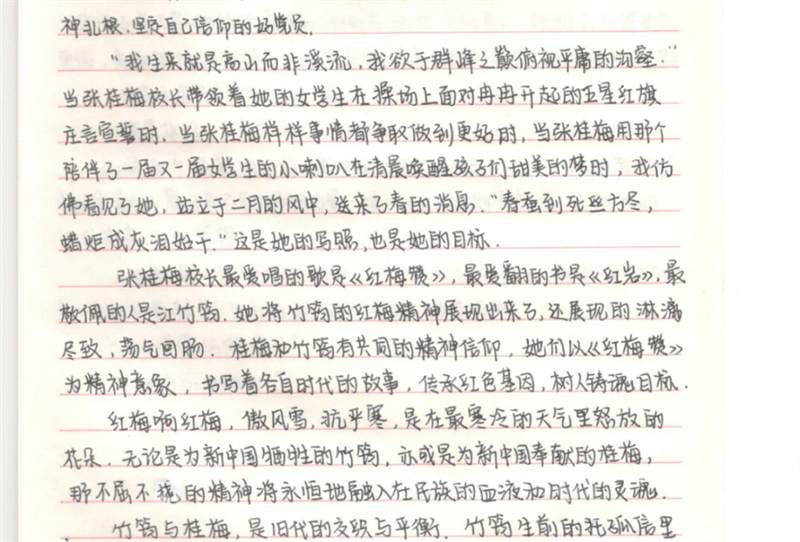 神扎根,坚定自己信仰的好党员.
"我生来就是高山而非溪流,我欲于群峰之巅俯视平庸的沟壑."
当张桂梅校长带领着她的女学生在操场上面对冉冉升起的五星红旗
庄言宣誓时,当张桂梅样样事情都争取做到更好时,当张桂梅用那个
陪伴了一届又一届女学生的小喇叭在清晨唤醒孩子们甜美的梦时,我仿
佛看见了她,站立于二月的风中,送来了春的消息."春蚕到死丝方尽,
蜡炬成灰泪始干."这是她的写照,也是她的目标.
张桂梅校长最爱唱的歌是《红梅赞》,最爱翻的书是《红岩》,最
敬佩的人是江竹筠.她将竹筠的红梅精神展现出来了,还展现的淋漓
尽致,荡气回肠.桂梅和竹筠有共同的精神信仰,她们以《红梅赞》
为精神意象,书写着各自时代的故事,传承红色基因,树人铸魂目标.
红梅啊红梅,傲风雪,抗严寒,是在最寒冷的天气里怒放的
花朵.无论是为新中国牺牲的竹筠,亦或是为新中国奉献的桂梅,
那不屈不挠的精神将永恒地融入在民族的血液和时代的灵魂.
竹筠与桂梅,是旧代的交织与平衡.竹筠生前的托孤信里